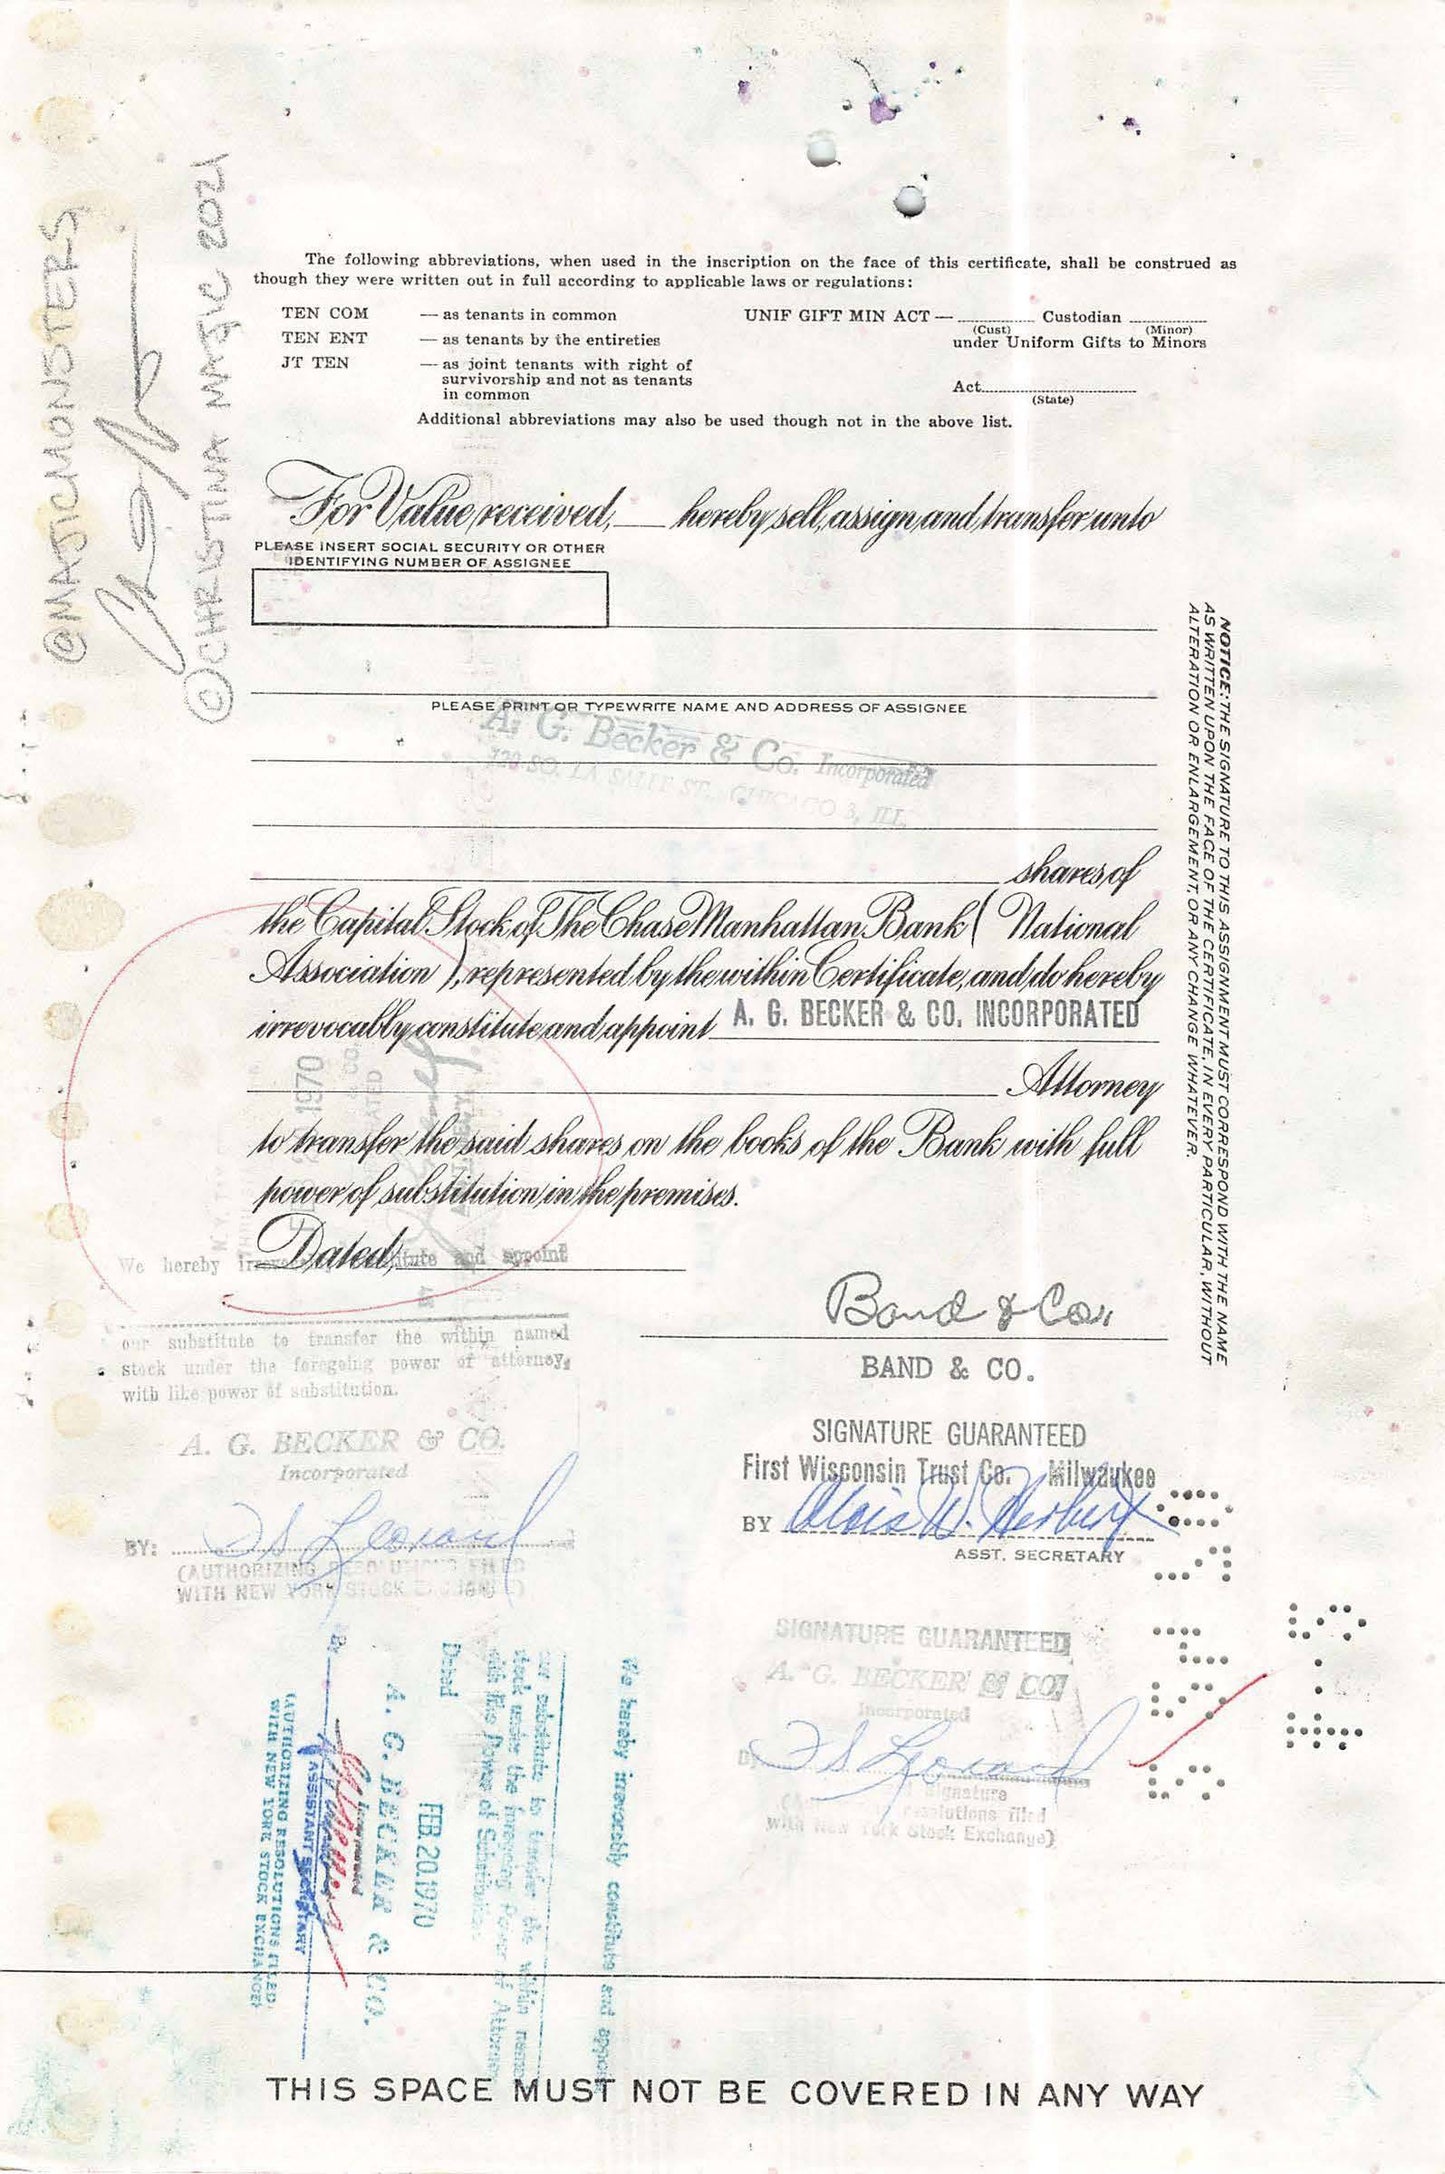 @MAJICMONSTERS
©CHRISTINA MAJIC 2021
The following abbreviations, when used in the inscription on the face of this certificate, shall be construed as
though they were written out in full according to applicable laws or regulations:
TEN COM — as tenants in common
TEN ENT — as tenants by the entireties
JT TEN — as joint tenants with right of
survivorship and not as tenants
in common
UNIF GIFT MIN ACT — Custodian
(Cust) (Minor)
under Uniform Gifts to Minors
Act
(State)
Additional abbreviations may also be used though not in the above list.
For Value received, hereby sell, assign and transfer unto
PLEASE INSERT SOCIAL SECURITY OR OTHER
IDENTIFYING NUMBER OF ASSIGNEE
PLEASE PRINT OR TYPEWRITE NAME AND ADDRESS OF ASSIGNEE
A. G. Becker & Co. Incorporated
SO. LA SALLE ST., CHICAGO 3, ILL.
shares of
the Capital Stock of The Chase Manhattan Bank (National
Association), represented by the within Certificate, and do hereby
irrevocably constitute and appoint A. G. BECKER & CO. INCORPORATED
Attorney
to transfer the said shares on the books of the Bank with full
power of substitution in the premises.
Dated,
NOTICE: THE SIGNATURE TO THIS ASSIGNMENT MUST CORRESPOND WITH THE NAME
AS WRITTEN UPON THE FACE OF THE CERTIFICATE, IN EVERY PARTICULAR, WITHOUT
ALTERATION OR ENLARGEMENT, OR ANY CHANGE WHATEVER.
1970
We hereby irrevocably constitute and appoint
our substitute to transfer the within named
stock under the foregoing power of attorney,
with like power of substitution.
A. G. BECKER & CO.
Incorporated
BY: F S Leonard
(AUTHORIZING RESOLUTIONS FILED
WITH NEW YORK STOCK EXCHANGE)
Band & Co.
BAND & CO.
SIGNATURE GUARANTEED
First Wisconsin Trust Co. Milwaukee
BY Alois W. Herbert
ASST. SECRETARY
SIGNATURE GUARANTEED
A. G. BECKER & CO.
Incorporated
F S Leonard
signature
resolutions filed
with New York Stock Exchange)
We hereby irrevocably constitute and appoint
our substitute to transfer the within named
stock under the foregoing Power of Attorney
with like Power of Substitution
Dated FEB. 20. 1970
A. G. BECKER & CO.
Incorporated
By
ASSISTANT SECRETARY
(AUTHORIZING RESOLUTIONS FILED
WITH NEW YORK STOCK EXCHANGE)
THIS SPACE MUST NOT BE COVERED IN ANY WAY